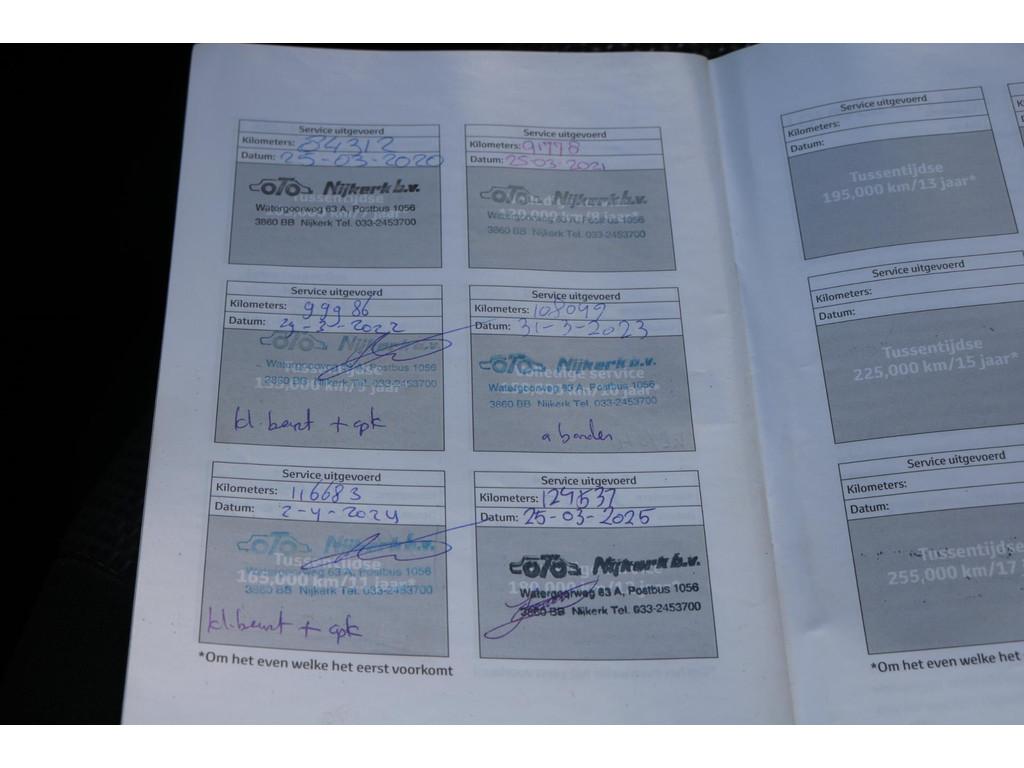 Service uitgevoerd
Kilometers: 84312
Datum: 25-03-2020
OTO Nijkerk b.v.
Watergoorweg 63 A, Postbus 1056
3860 BB Nijkerk Tel. 033-2453700
Service uitgevoerd
Kilometers: 91778
Datum: 25-03-2021
OTO Nijkerk b.v.
Watergoorweg 63 A, Postbus 1056
3860 BB Nijkerk Tel. 033-2453700
Service uitgevoerd
Kilometers: 99986
Datum: 29-3-2022
OTO Nijkerk b.v.
Watergoorweg 63 A, Postbus 1056
3860 BB Nijkerk Tel. 033-2453700
kl. beurt + apk
Service uitgevoerd
Kilometers: 108049
Datum: 31-3-2023
OTO Nijkerk b.v.
Watergoorweg 63 A, Postbus 1056
3860 BB Nijkerk Tel. 033-2453700
banden
Service uitgevoerd
Kilometers: 116683
Datum: 2-4-2024
OTO Nijkerk b.v.
Tussentijdse
Watergoorweg 63 A, Postbus 1056
165,000 km/11 jaar*
3860 BB Nijkerk Tel. 033-2453700
kl. beurt + apk
Service uitgevoerd
Kilometers: 124537
Datum: 25-03-2025
OTO Nijkerk b.v.
Watergoorweg 63 A, Postbus 1056
3860 BB Nijkerk Tel. 033-2453700
*Om het even welke het eerst voorkomt
Service uitgevoerd
Kilometers:
Datum:
Tussentijdse
195,000 km/13 jaar*
Service uitgevoerd
Kilometers:
Datum:
Tussentijdse
225,000 km/15 jaar*
Service uitgevoerd
Kilometers:
Datum:
Tussentijdse
255,000 km/17
*Om het even welke het